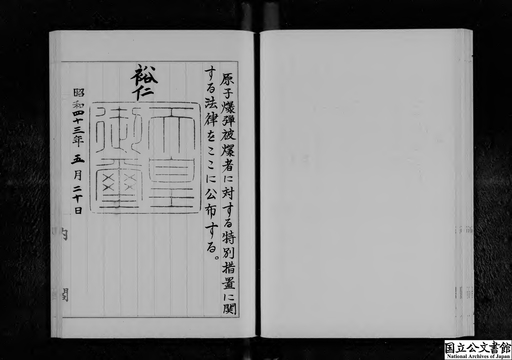 原子爆弾被爆者に対する特別措置に関
する法律をここに公布する。
裕仁
天皇
御璽
昭和四十三年五月二十日
内閣
国立公文書館
National Archives of Japan